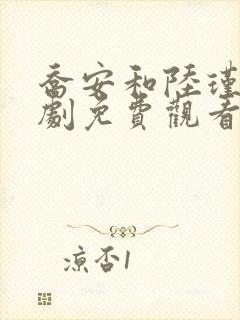 喬安和陸瑾
劇免費觀看
涼否1